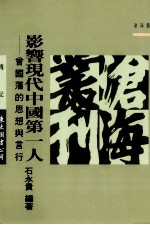 滄海叢刊
影響現代中國第一人
——曾國藩的思想與言行
石永貴 編著
傳記
東大圖書公司